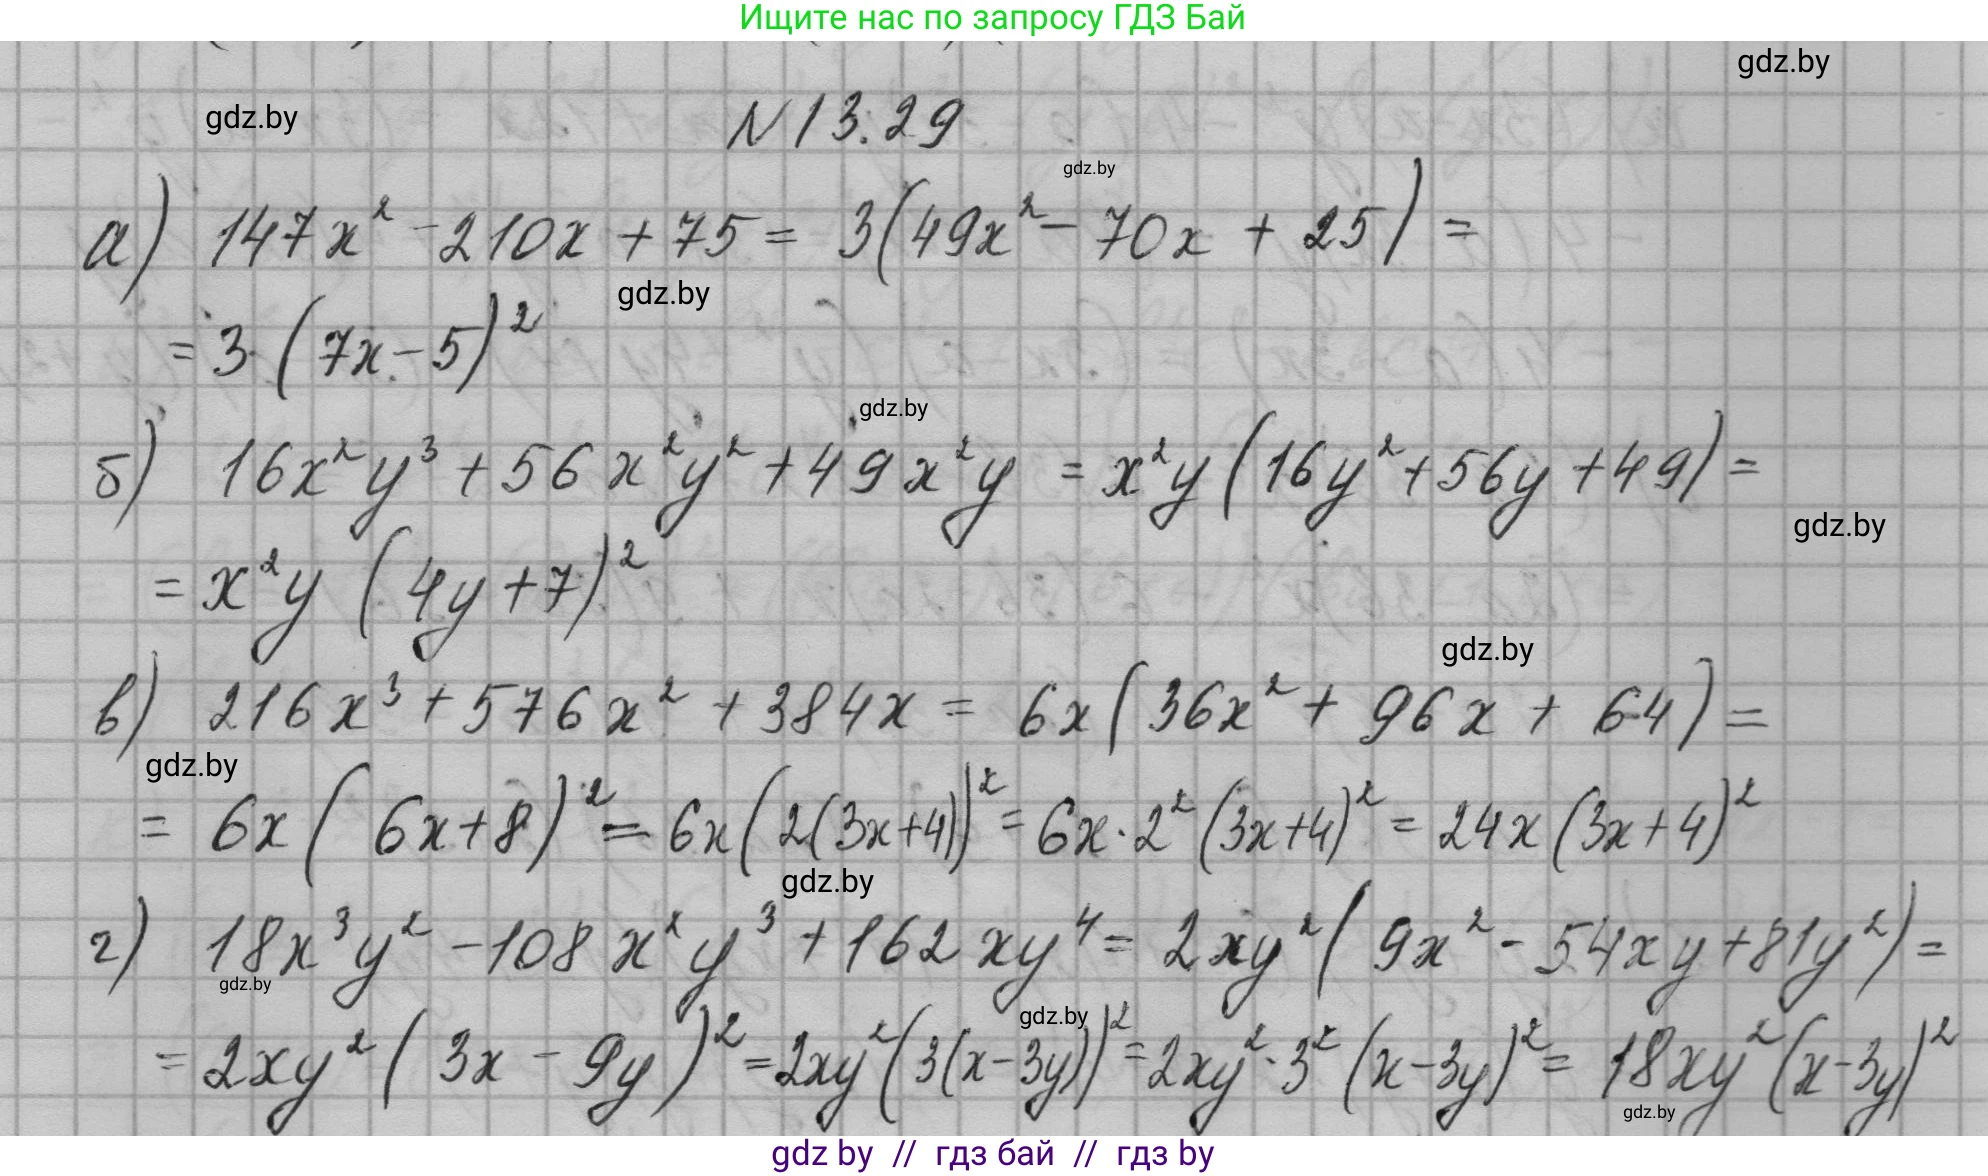 Ищите нас по запросу ГДЗ Бай
gdz.by
gdz.by
N 13.29
gdz.by
а) 147x² - 210x + 75 = 3(49x² - 70x + 25) =
gdz.by
= 3·(7x - 5)²
gdz.by
б) 16x²y³ + 56x²y² + 49x²y = x²y(16y² + 56y + 49) =
gdz.by
= x²y (4y + 7)²
gdz.by
в) 216x³ + 576x² + 384x = 6x(36x² + 96x + 64) =
gdz.by
= 6x(6x + 8)² = 6x(2(3x + 4))² = 6x·2²(3x + 4)² = 24x(3x + 4)²
gdz.by
г) 18x³y² - 108x²y³ + 162xy⁴ = 2xy²(9x² - 54xy + 81y²) =
gdz.by
gdz.by
= 2xy²(3x - 9y)² = 2xy²(3(x - 3y))² = 2xy²·3²(x - 3y)² = 18xy²(x - 3y)²
gdz.by
gdz by // гдз бай // гдз by